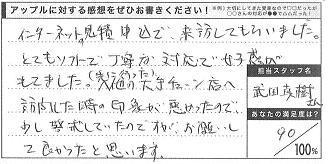 アップルに対する感想をぜひお書きください!
インターネットの見積申込で、来訪してもらいました。
とてもソフトで丁寧な対応で好感が
もてました。(走り寄った)
大手チェーン店へ
訪問した時の印象が悪かったので
少し警戒していたのですが、お願いし
て良かったと思います。
担当スタッフ名
武田真樹
あなたの満足度は?
90
/100%